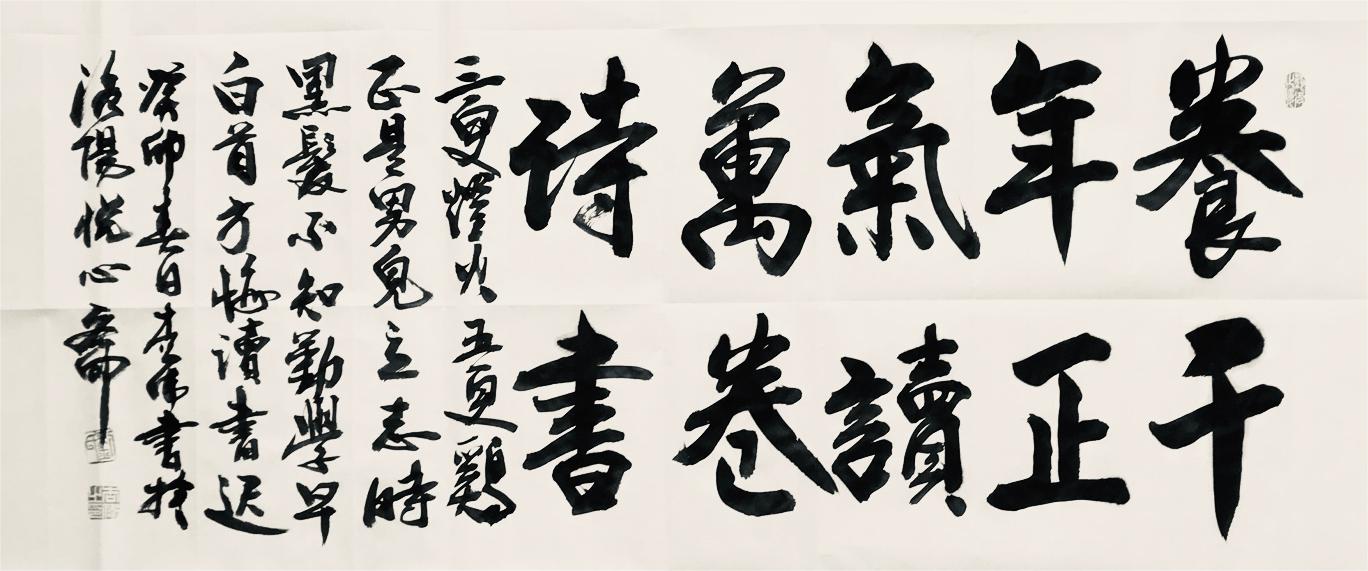 養千
年正
氣讀
萬卷
诗書
三更燈火五更鷄
正是男兒立志時
黑髮不知勤學早
白首方悔讀書迟
癸卯春日李偉書於
洛陽悦心齋